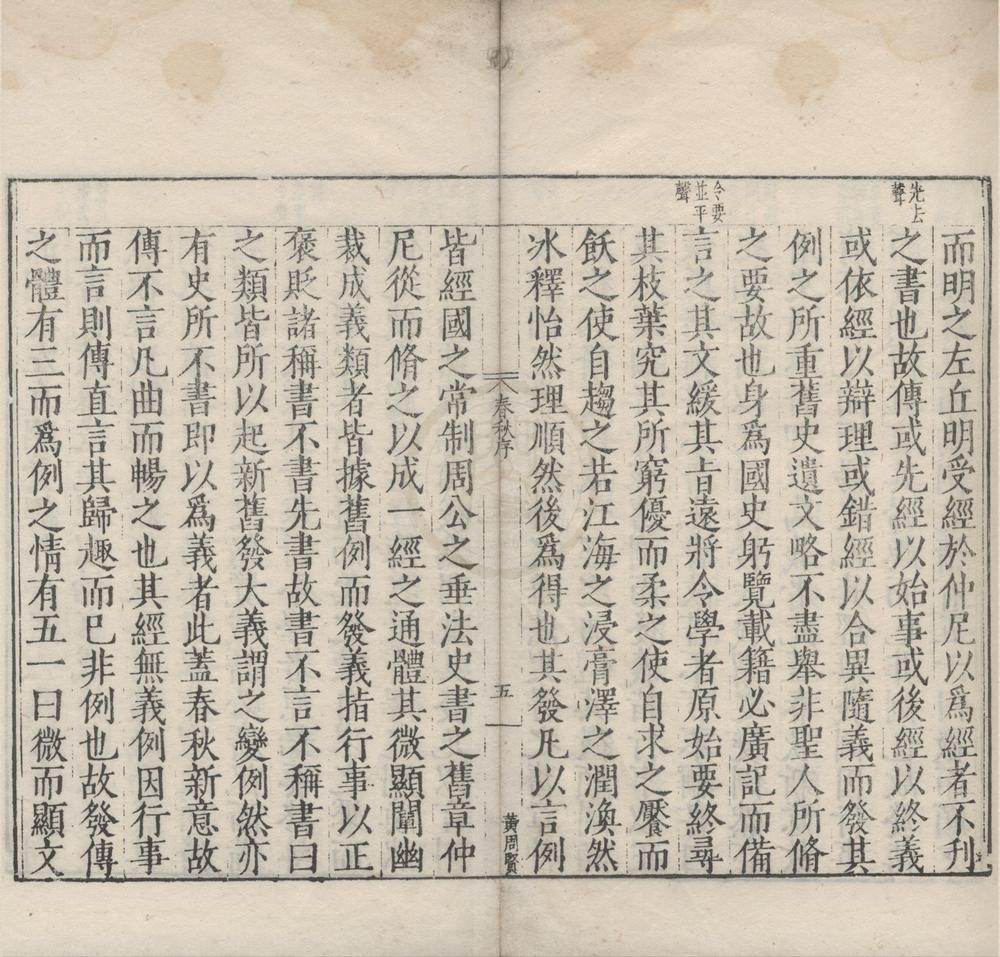 先去聲
而明之左丘明受經於仲尼以爲經者不刊
之書也故傳或先經以始事或後經以終義
或依經以辯理或錯經以合異隨義而發其
例之所重舊史遺文略不盡舉非聖人所脩
之要故也身爲國史躬覽載籍必廣記而備
令要並平聲
言之其文緩其旨遠將令學者原始要終尋
其枝葉究其所窮優而柔之使自求之饜而
飫之使自趨之若江海之浸膏澤之潤渙然
冰釋怡然理順然後爲得也其發凡以言例
春秋序
五
黄周賢
皆經國之常制周公之垂法史書之舊章仲
尼從而脩之以成一經之通體其微顯闡幽
裁成義類者皆據舊例而發義指行事以正
褒貶諸稱書不書先書故書不言不稱書曰
之類皆所以起新舊發大義謂之變例然亦
有史所不書即以爲義者此蓋春秋新意故
傳不言凡曲而暢之也其經無義例因行事
而言則傳直言其歸趣而已非例也故發傳
之體有三而爲例之情有五一曰微而顯文